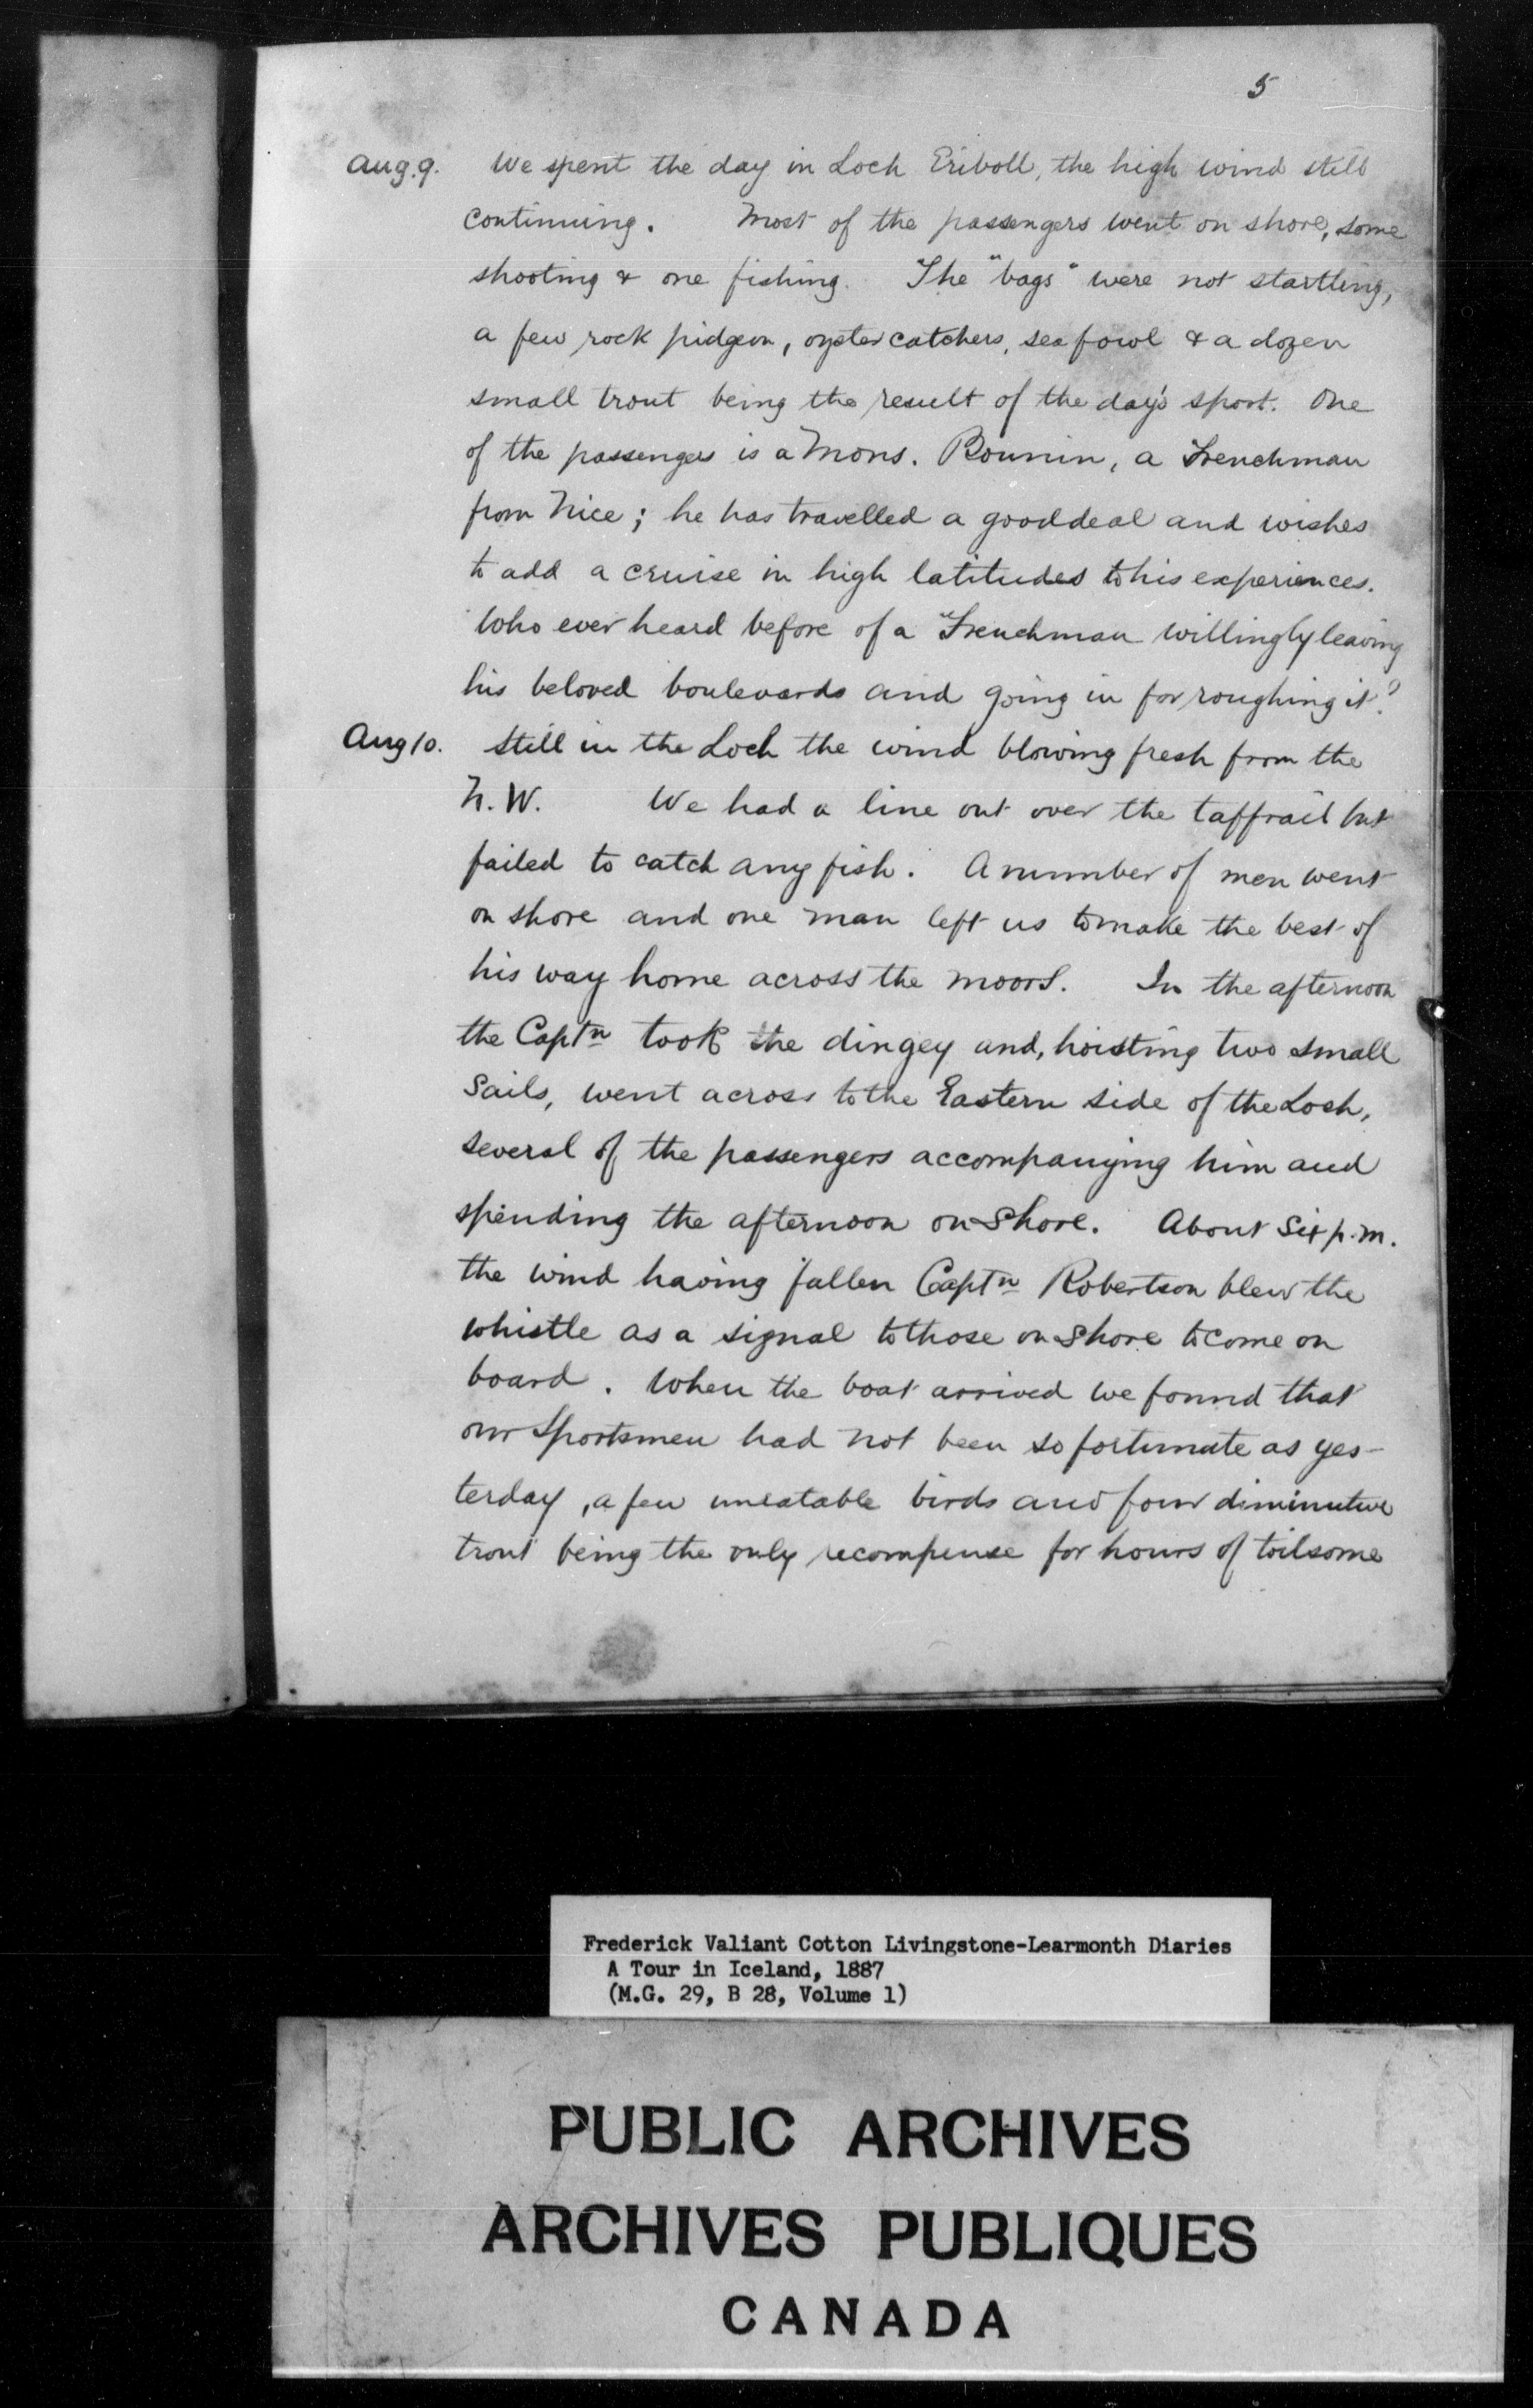 5
Aug. 9. We spent the day in Loch Eriboll, the high wind still
continuing. Most of the passengers went on shore, some
shooting & one fishing. The "bags" were not startling,
a few rock pidgeon, oyster catchers, sea fowl & a dozen
small trout being the result of the day's sport. One
of the passengers is a Mons. Bounin, a Frenchman
from Nice; he has travelled a good deal and wishes
to add a cruise in high latitudes to his experiences.
Who ever heard before of a Frenchman willingly leaving
his beloved boulevards and going in for roughing it?
Aug 10. Still in the Loch the wind blowing fresh from the
N.W. We had a line out over the taffrail but
failed to catch any fish. A number of men went
on shore and one man left us to make the best of
his way home across the moors. In the afternoon
the Captn took the dingey and, hoisting two small
sails, went across to the Eastern side of the Loch,
several of the passengers accompanying him and
spending the afternoon on shore. About six p.m.
the wind having fallen Captn Robertson blew the
whistle as a signal to those on shore to come on
board. When the boat arrived we found that
our sportsmen had not been so fortunate as yes-
terday, a few uneatable birds and four diminutive
trout being the only recompense for hours of toilsome
Frederick Valiant Cotton Livingstone-Learmonth Diaries
A Tour in Iceland, 1887
(M.G. 29, B 28, Volume 1)
PUBLIC ARCHIVES
ARCHIVES PUBLIQUES
CANADA